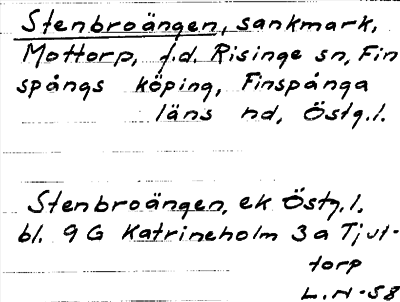 Stenbroängen, sankmark,
Mottorp, f.d. Risinge sn, Fin
spångs köping, Finspånga
läns hd, Östg.l.
Stenbroängen, ek Östg.l.
bl. 9 G Katrineholm 3a Tjut-
torp
L.N-58